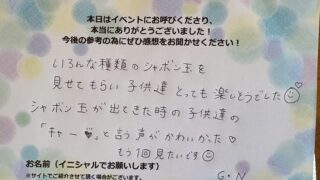 本日はイベントにお呼びくださり、
本当にありがとうございました！
今後の参考の為にぜひ感想をお聞かせください！
いろんな種類のシャボン玉を
見せてもらい子供達とっても楽しそうでした☺
シャボン玉が出てきた時の子供達の
「キャー♥」と言う声がかわいかった♡
もう1回見たいです☺
お名前（イニシャルでお願いします）
※サイトでご紹介させて頂く場合がございます。
G・N